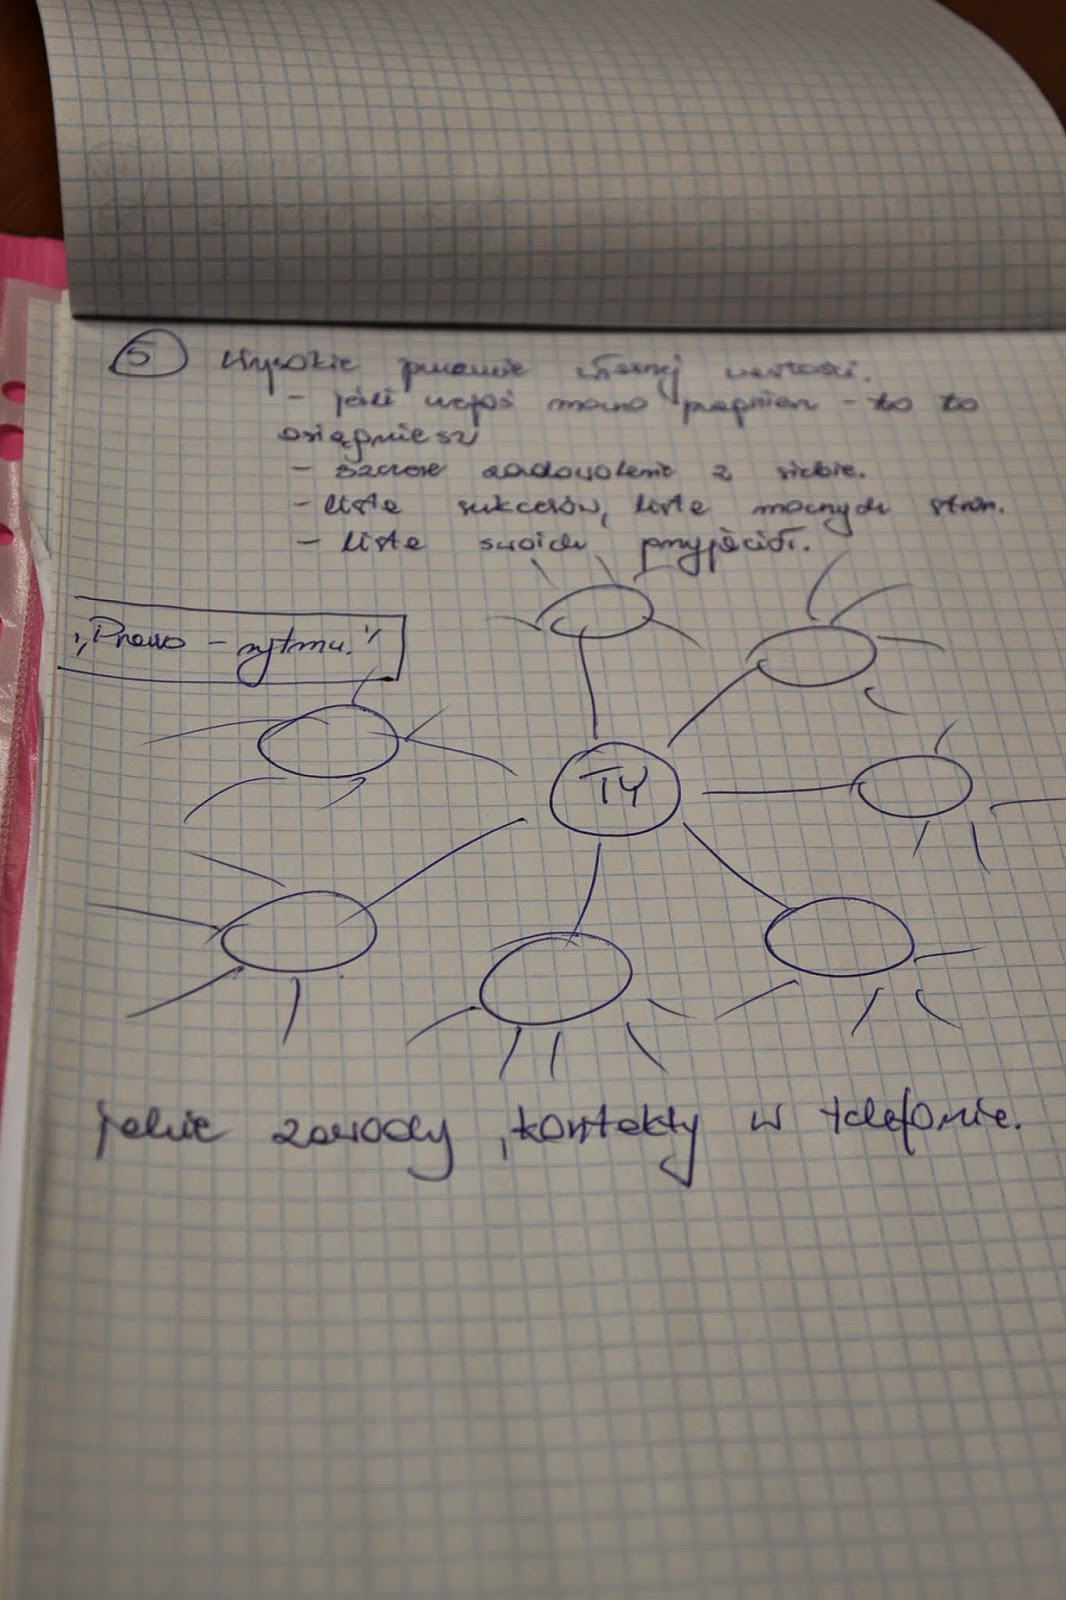 5 Wysokie poczucie własnej wartości.
- jeśli czegoś mocno pragniesz - to to
osiągniesz
- szczere zadowolenie z siebie.
- lista sukcesów, lista mocnych stron.
- lista swoich przyjaciół.
"Prawo - rytmu."
TY
jakie zawody, kontakty w telefonie.